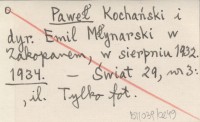 Paweł Kochański i
dyr. Emil Młynarski w
Zakopanem, w sierpniu 1932.
1934. — Świat 29, nr 3:
, il. Tylko fot.